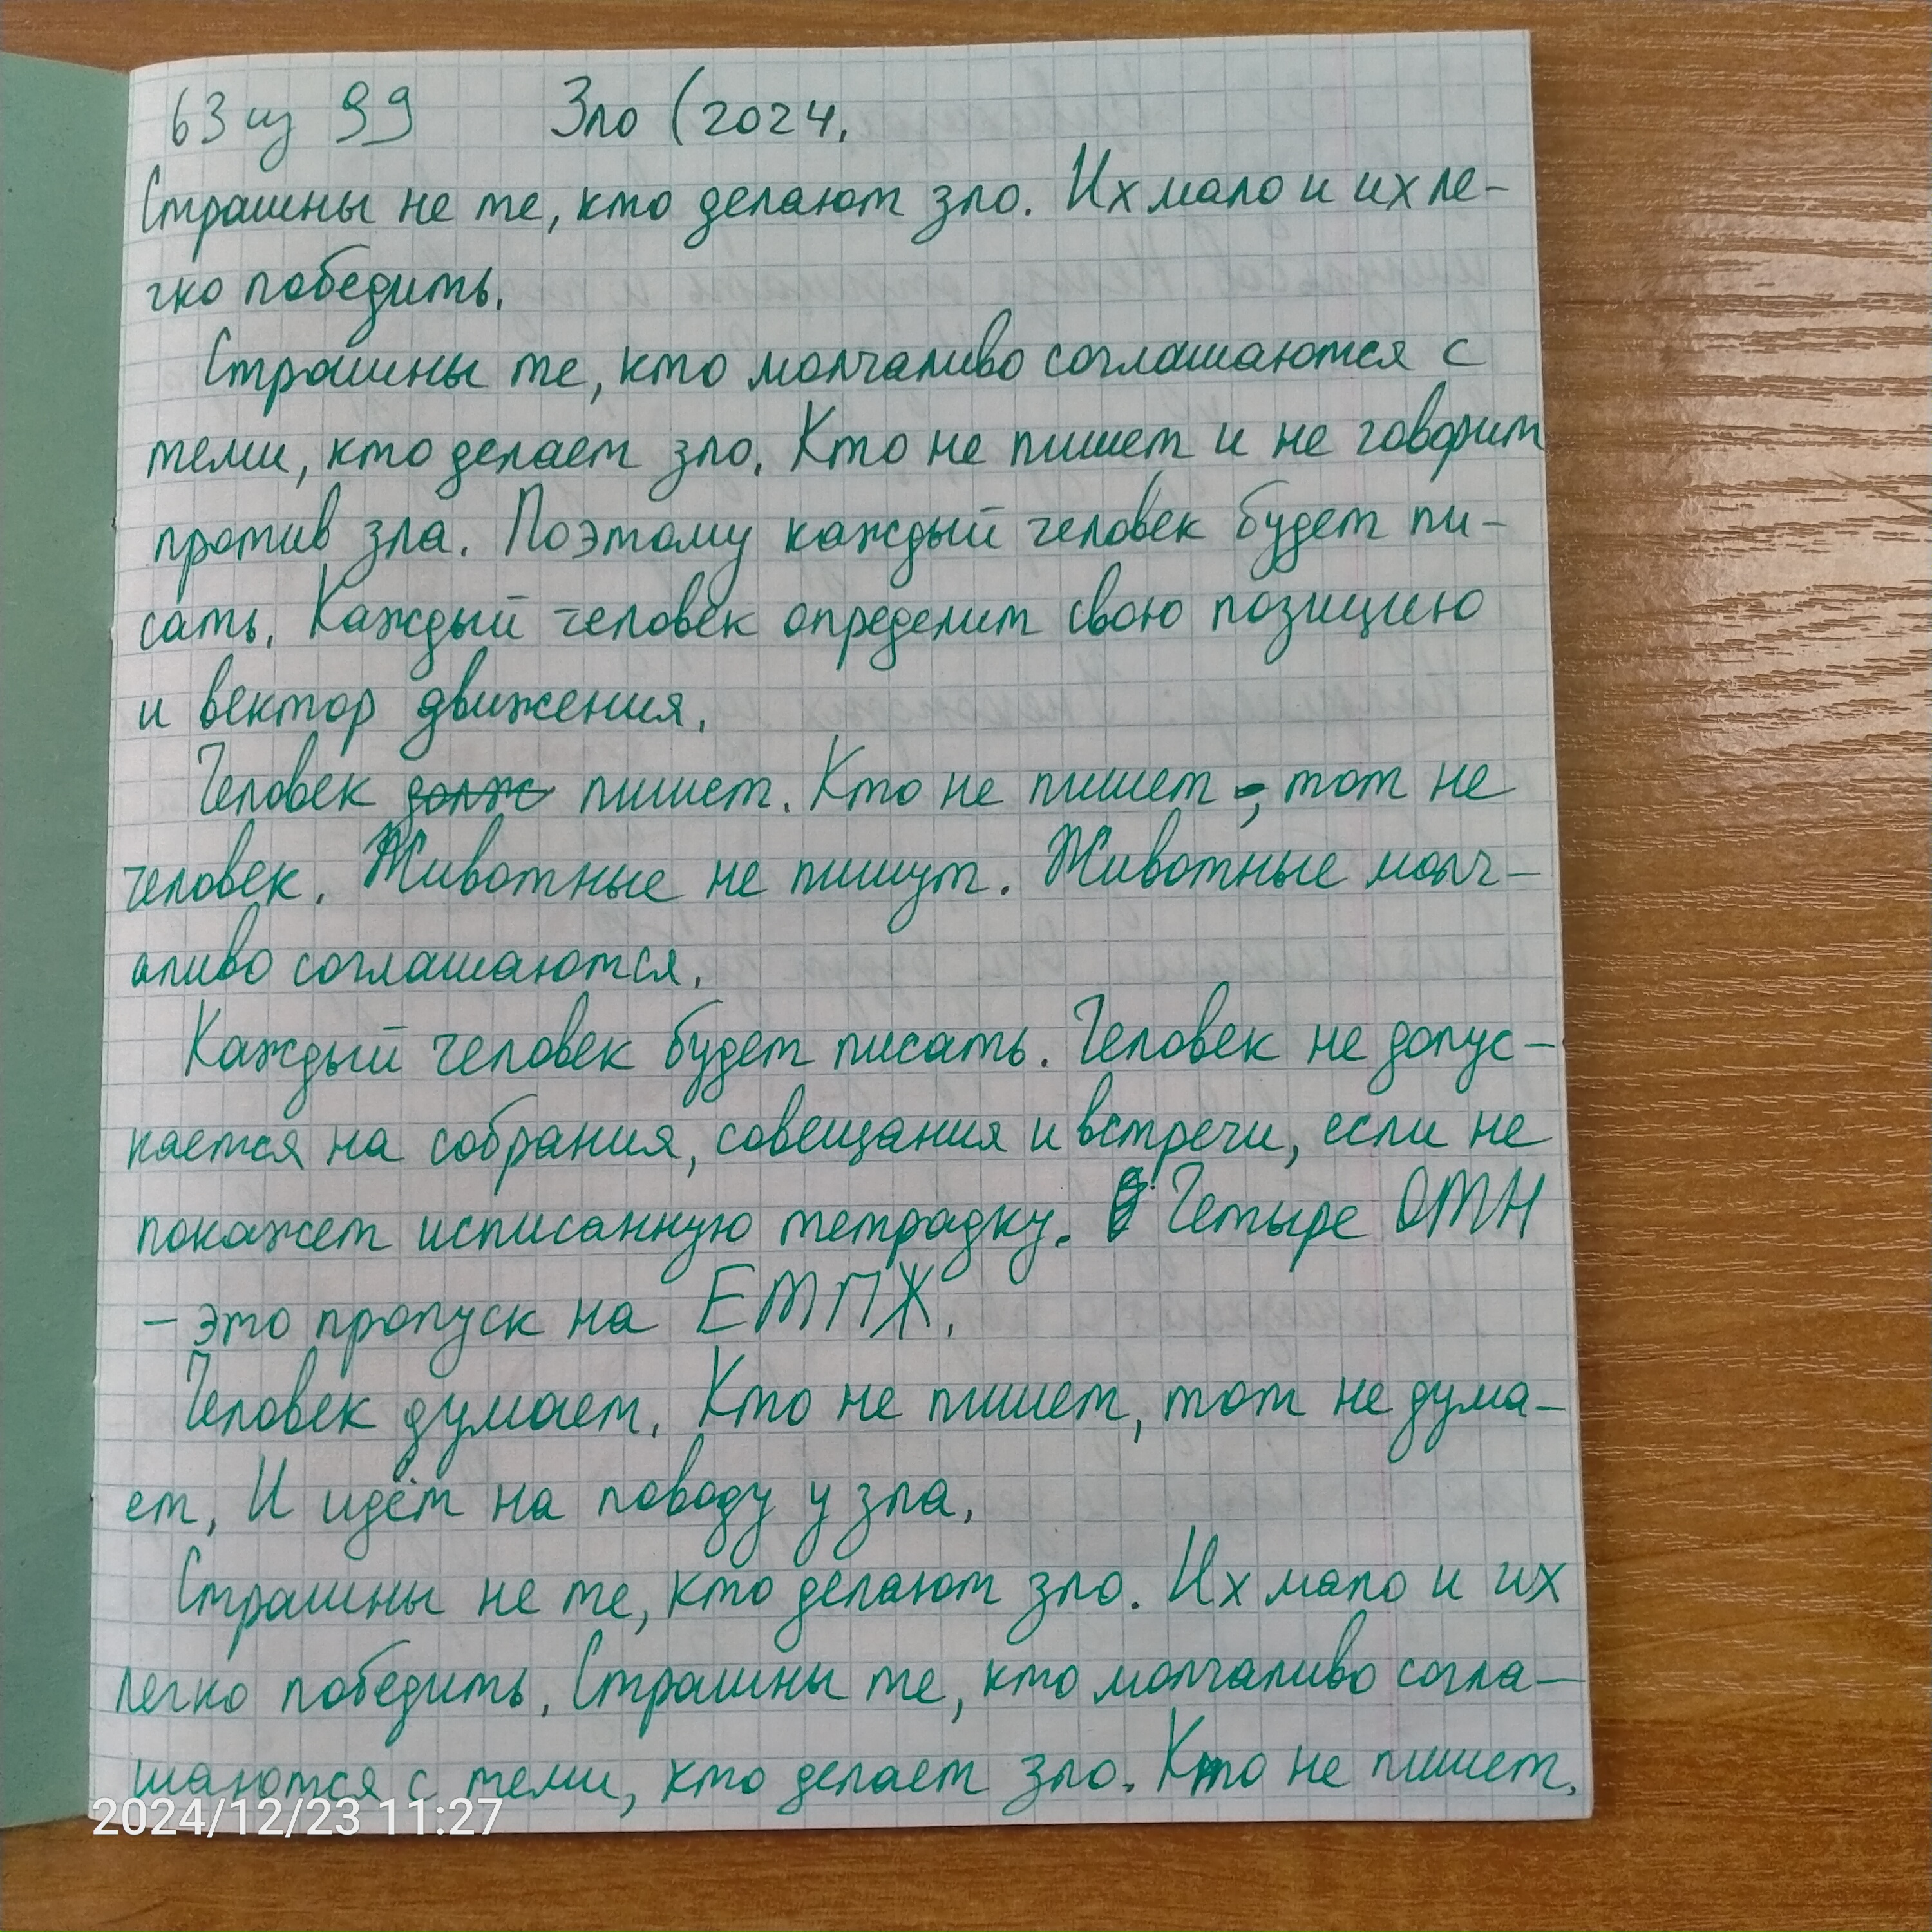 63 из 99 Зло (2024.
Страшны не те, кто делают зло. Их мало и их ле-
гко победить.
Страшны те, кто молчаливо соглашаются с
теми, кто делает зло. Кто не пишет и не говорит
против зла. Поэтому каждый человек будет пи-
сать. Каждый человек определит свою позицию
и вектор движения.
Человек долж пишет. Кто не пишет, тот не
человек. Животные не пишут. Животные молч-
аливо соглашаются.
Каждый человек будет писать. Человек не допус-
кается на собрания, совещания и встречи, если не
покажет исписанную тетрадку. Четыре ОМН
- это пропуск на ЕМПЖ.
Человек думает. Кто не пишет, тот не дума-
ет. И идёт на поводу у зла.
Страшны не те, кто делают зло. Их мало и их
легко победить. Страшны те, кто молчаливо согла-
шаются с теми, кто делает зло. Кто не пишет.
2024/12/23 11:27